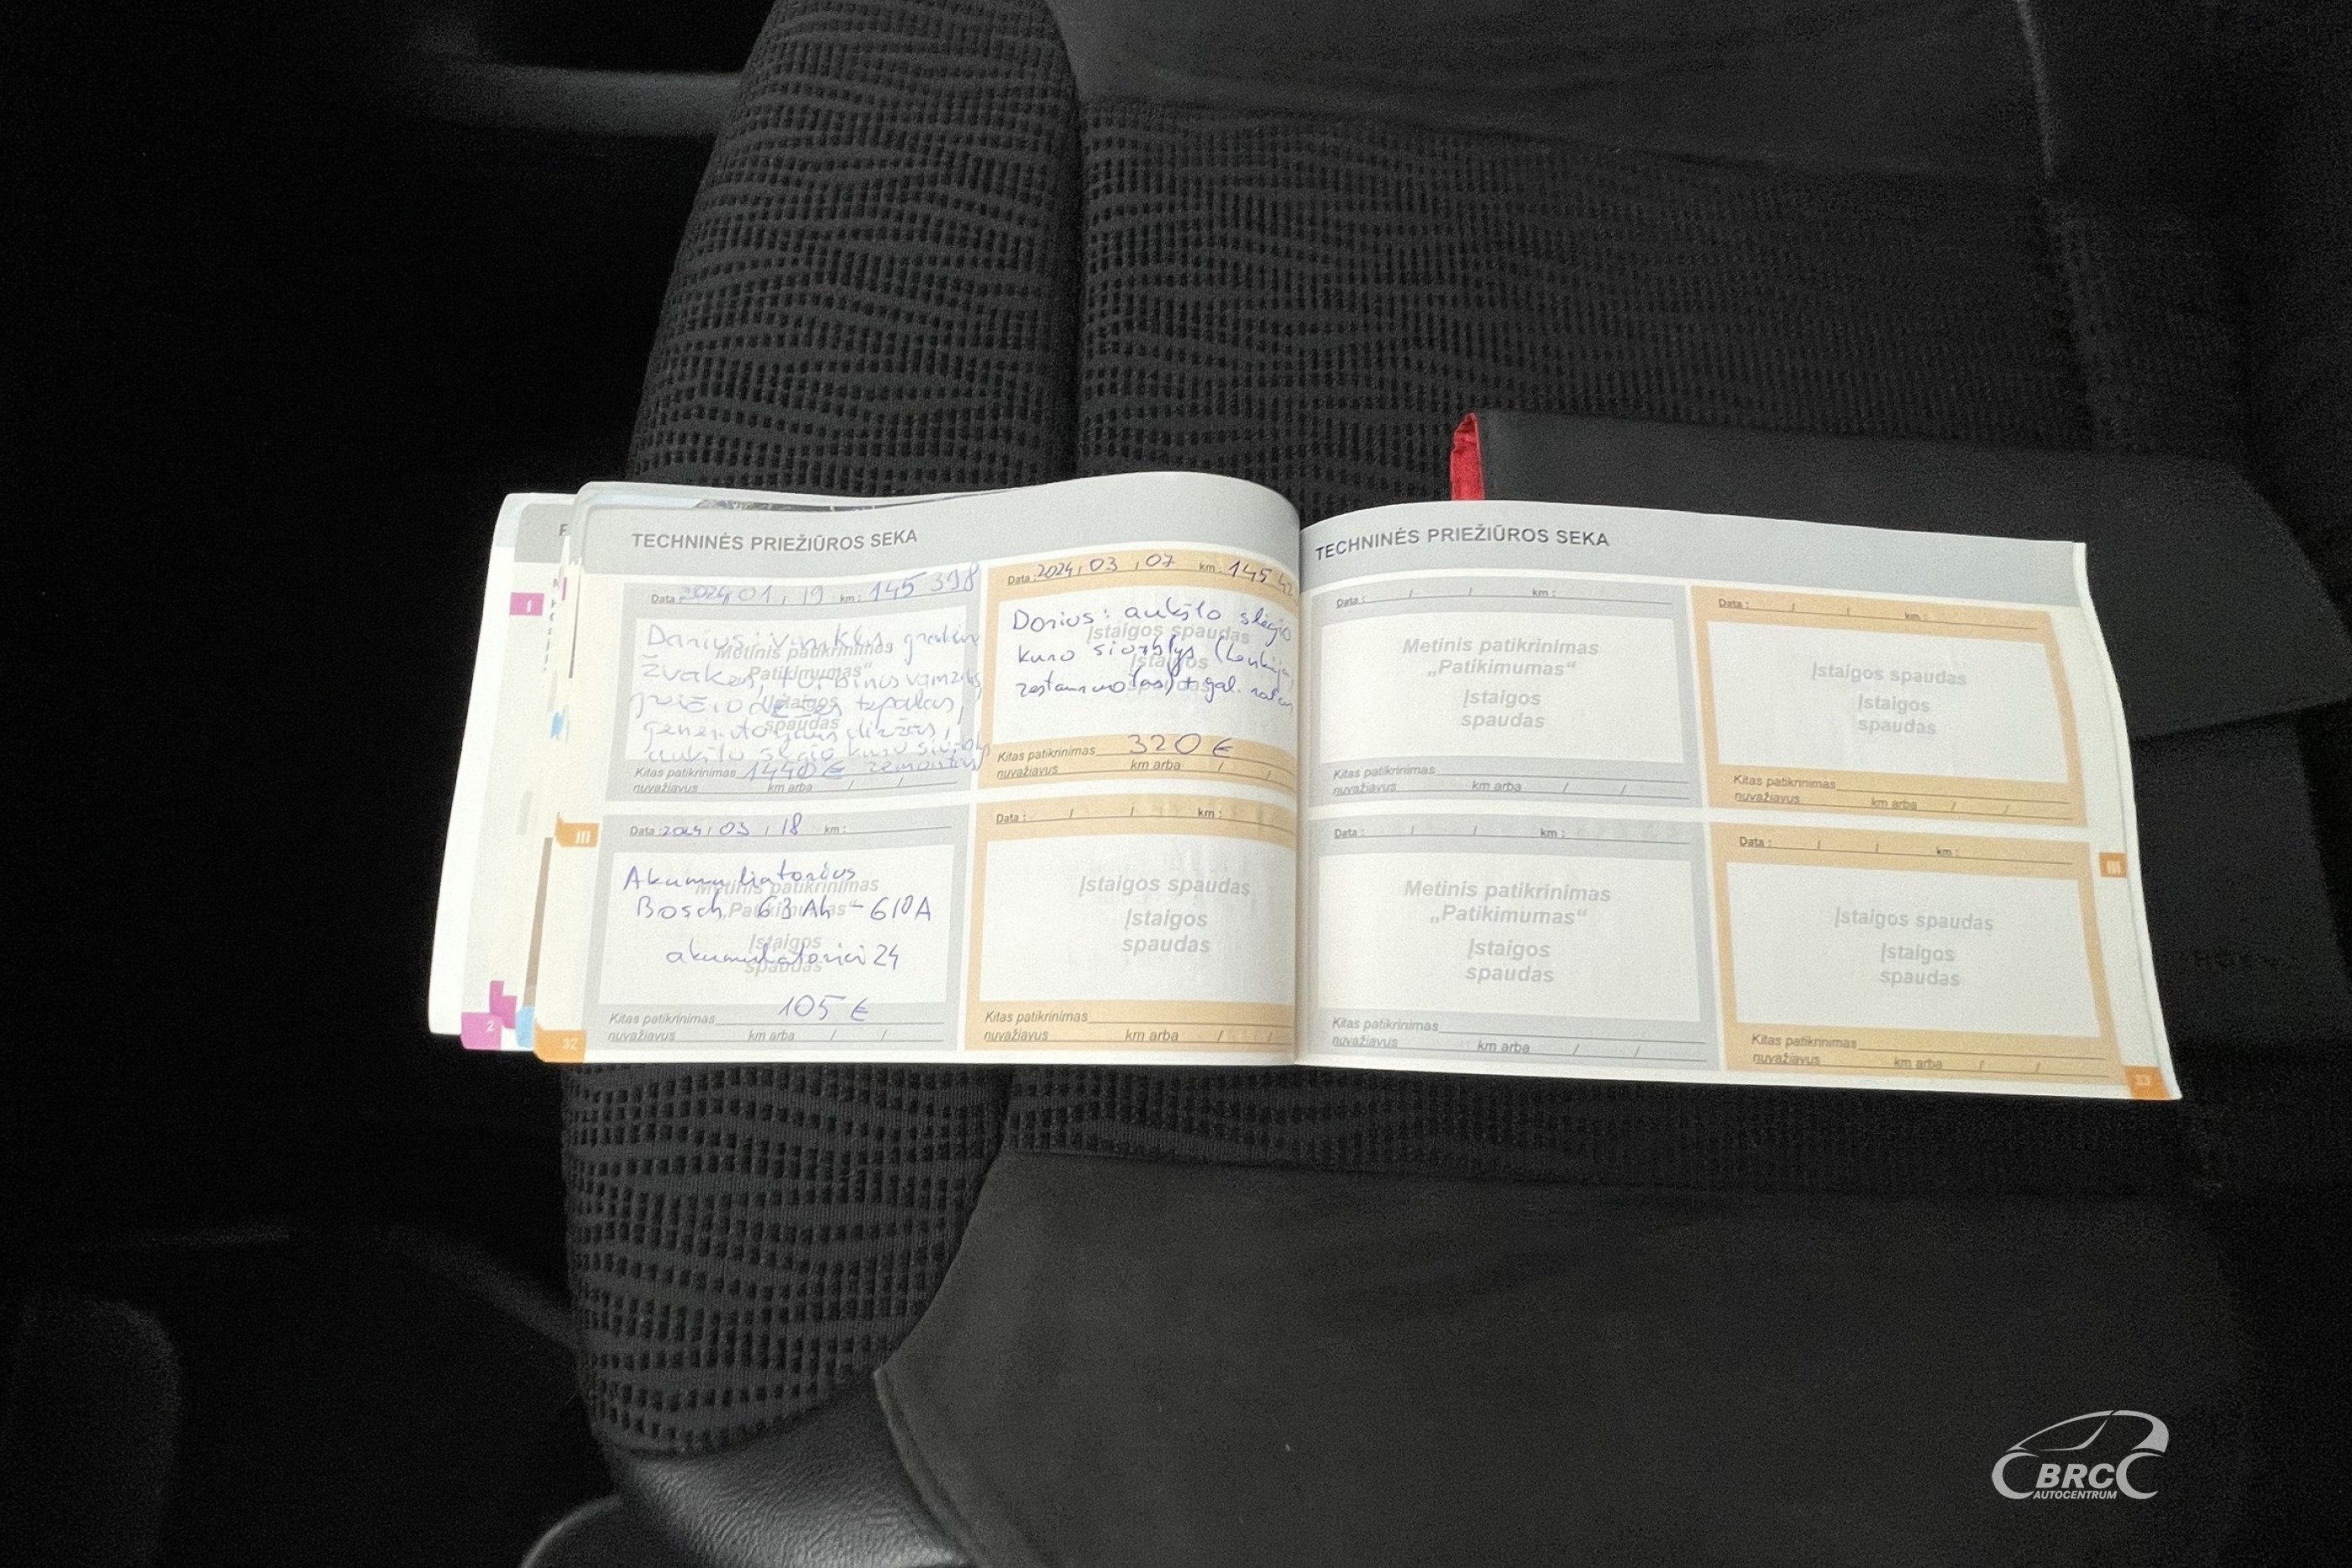 TECHNINĖS PRIEŽIŪROS SEKA
Data : 2024, 01, 19 km : 145 398
Darius: variklis,
žvakės, turbinos vamzdis,
greičio dėžės tepalas,
generatoriaus diržas,
aukšto slėgio kuro siurblys
Metinis patikrinimas
„Patikimumas“
Įstaigos
spaudas
Kitas patikrinimas 1440 €
nuvažiavus km arba / /
Data : 2024, 03, 07 km : 145
Darius: aukšto slėgio
kuro siurblys (Lenkija,
restauruotas) + gal.
Įstaigos spaudas
Įstaigos
spaudas
Kitas patikrinimas 320 €
nuvažiavus km arba / /
Data : 2024, 03, 18 km :
Akumuliatorius
Bosch 63 Ah - 610A
akumuliatoriai24
105 €
Metinis patikrinimas
„Patikimumas“
Įstaigos
spaudas
Kitas patikrinimas
nuvažiavus km arba / /
Data : / / km :
Įstaigos spaudas
Įstaigos
spaudas
Kitas patikrinimas
nuvažiavus km arba / /
32
2
I
III
TECHNINĖS PRIEŽIŪROS SEKA
Data : / / km :
Metinis patikrinimas
„Patikimumas“
Įstaigos
spaudas
Kitas patikrinimas
nuvažiavus km arba / /
Data : / / km :
Įstaigos spaudas
Įstaigos
spaudas
Kitas patikrinimas
nuvažiavus km arba / /
Data : / / km :
Metinis patikrinimas
„Patikimumas“
Įstaigos
spaudas
Kitas patikrinimas
nuvažiavus km arba / /
Data : / / km :
Įstaigos spaudas
Įstaigos
spaudas
Kitas patikrinimas
nuvažiavus km arba / /
III
33
BRC
AUTOCENTRUM